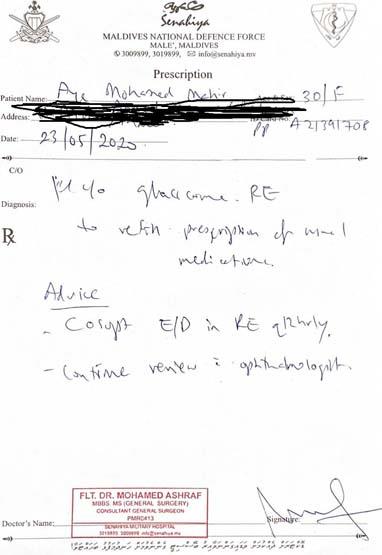 Senahiya
MALDIVES NATIONAL DEFENCE FORCE
MALE', MALDIVES
3009899, 3019899, info@senahiya.mv
Prescription
Patient Name: Aya Mohamed 30/F
Address: PP A21391708
Date: 23/05/2020
C/O
glaucoma. RE
Diagnosis:
to refill prescription of usual
Rx
medications.
Advice
- Cosopt E/D in RE q12hrly.
- Continue review c ophthalmologist.
FLT. DR. MOHAMED ASHRAF
MBBS. MS (GENERAL SURGERY)
CONSULTANT GENERAL SURGEON
PMR0413
SENAHIYA MILITARY HOSPITAL
3019899, 3009899 info@senahiya.mv
Doctor's Name: Signature: